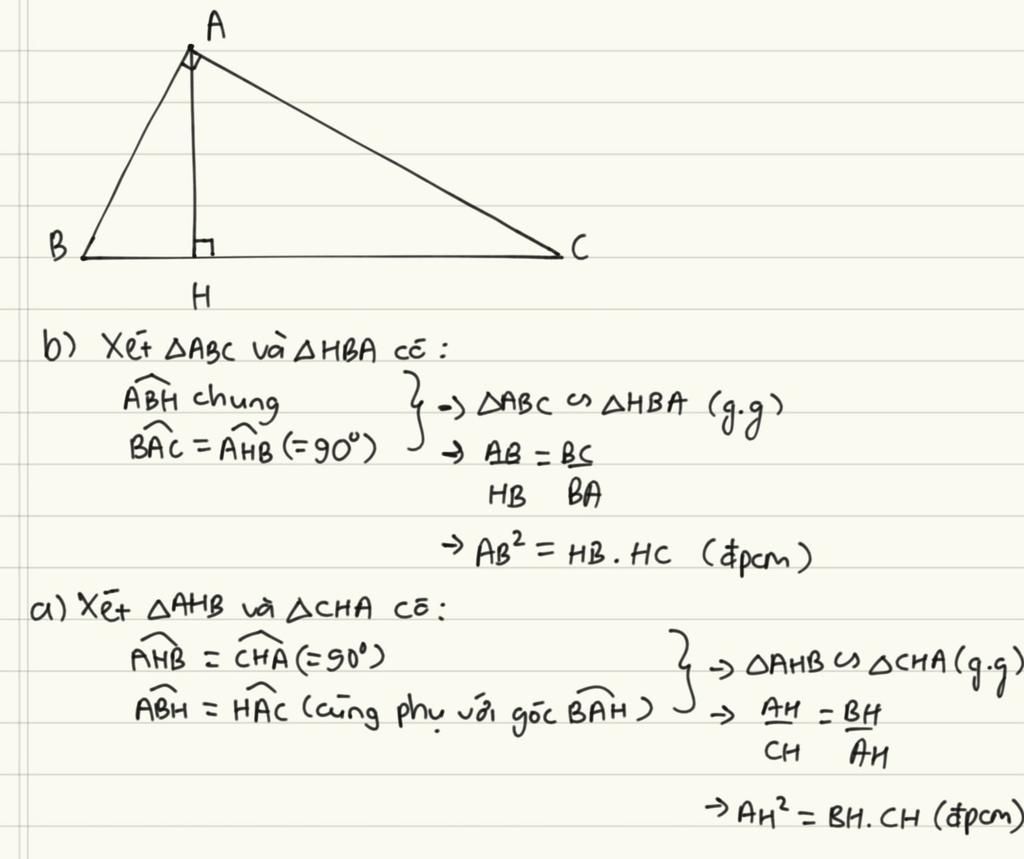 A
B
C
H
b) Xét △ABC và △HBA có:
ABH chung
BAC = AHB (=90°)
→ △ABC ∽ △HBA (g.g)
→ AB/HB = BC/BA
→ AB² = HB.HC (đpcm)
a) Xét △AHB và △CHA có:
AHB = CHA (=90°)
ABH = HAC (cùng phụ với góc BAH)
→ △AHB ∽ △CHA (g.g)
→ AH/CH = BH/AH
→ AH² = BH.CH (đpcm)